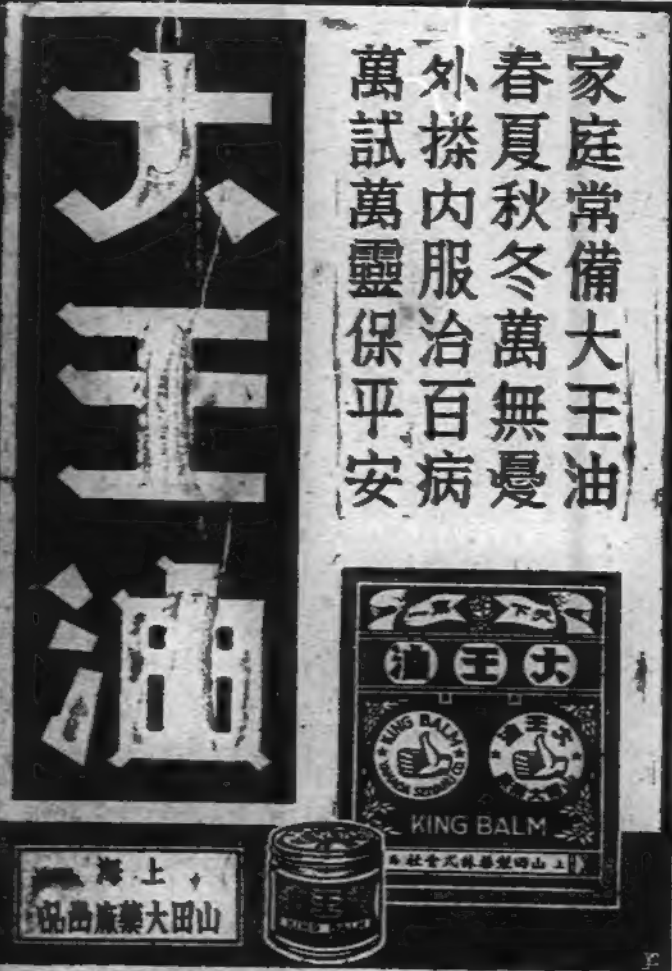 家庭常備大王油
春夏秋冬萬無憂
外搽内服治百病
萬試萬靈保平安
大王油
天下第一
大王油
KING BALM
YAMADA SEIYAKU CO
大王油
KING BALM
上海山田製藥株式會社
王
KING BALM
上海
山田大藥廠出品